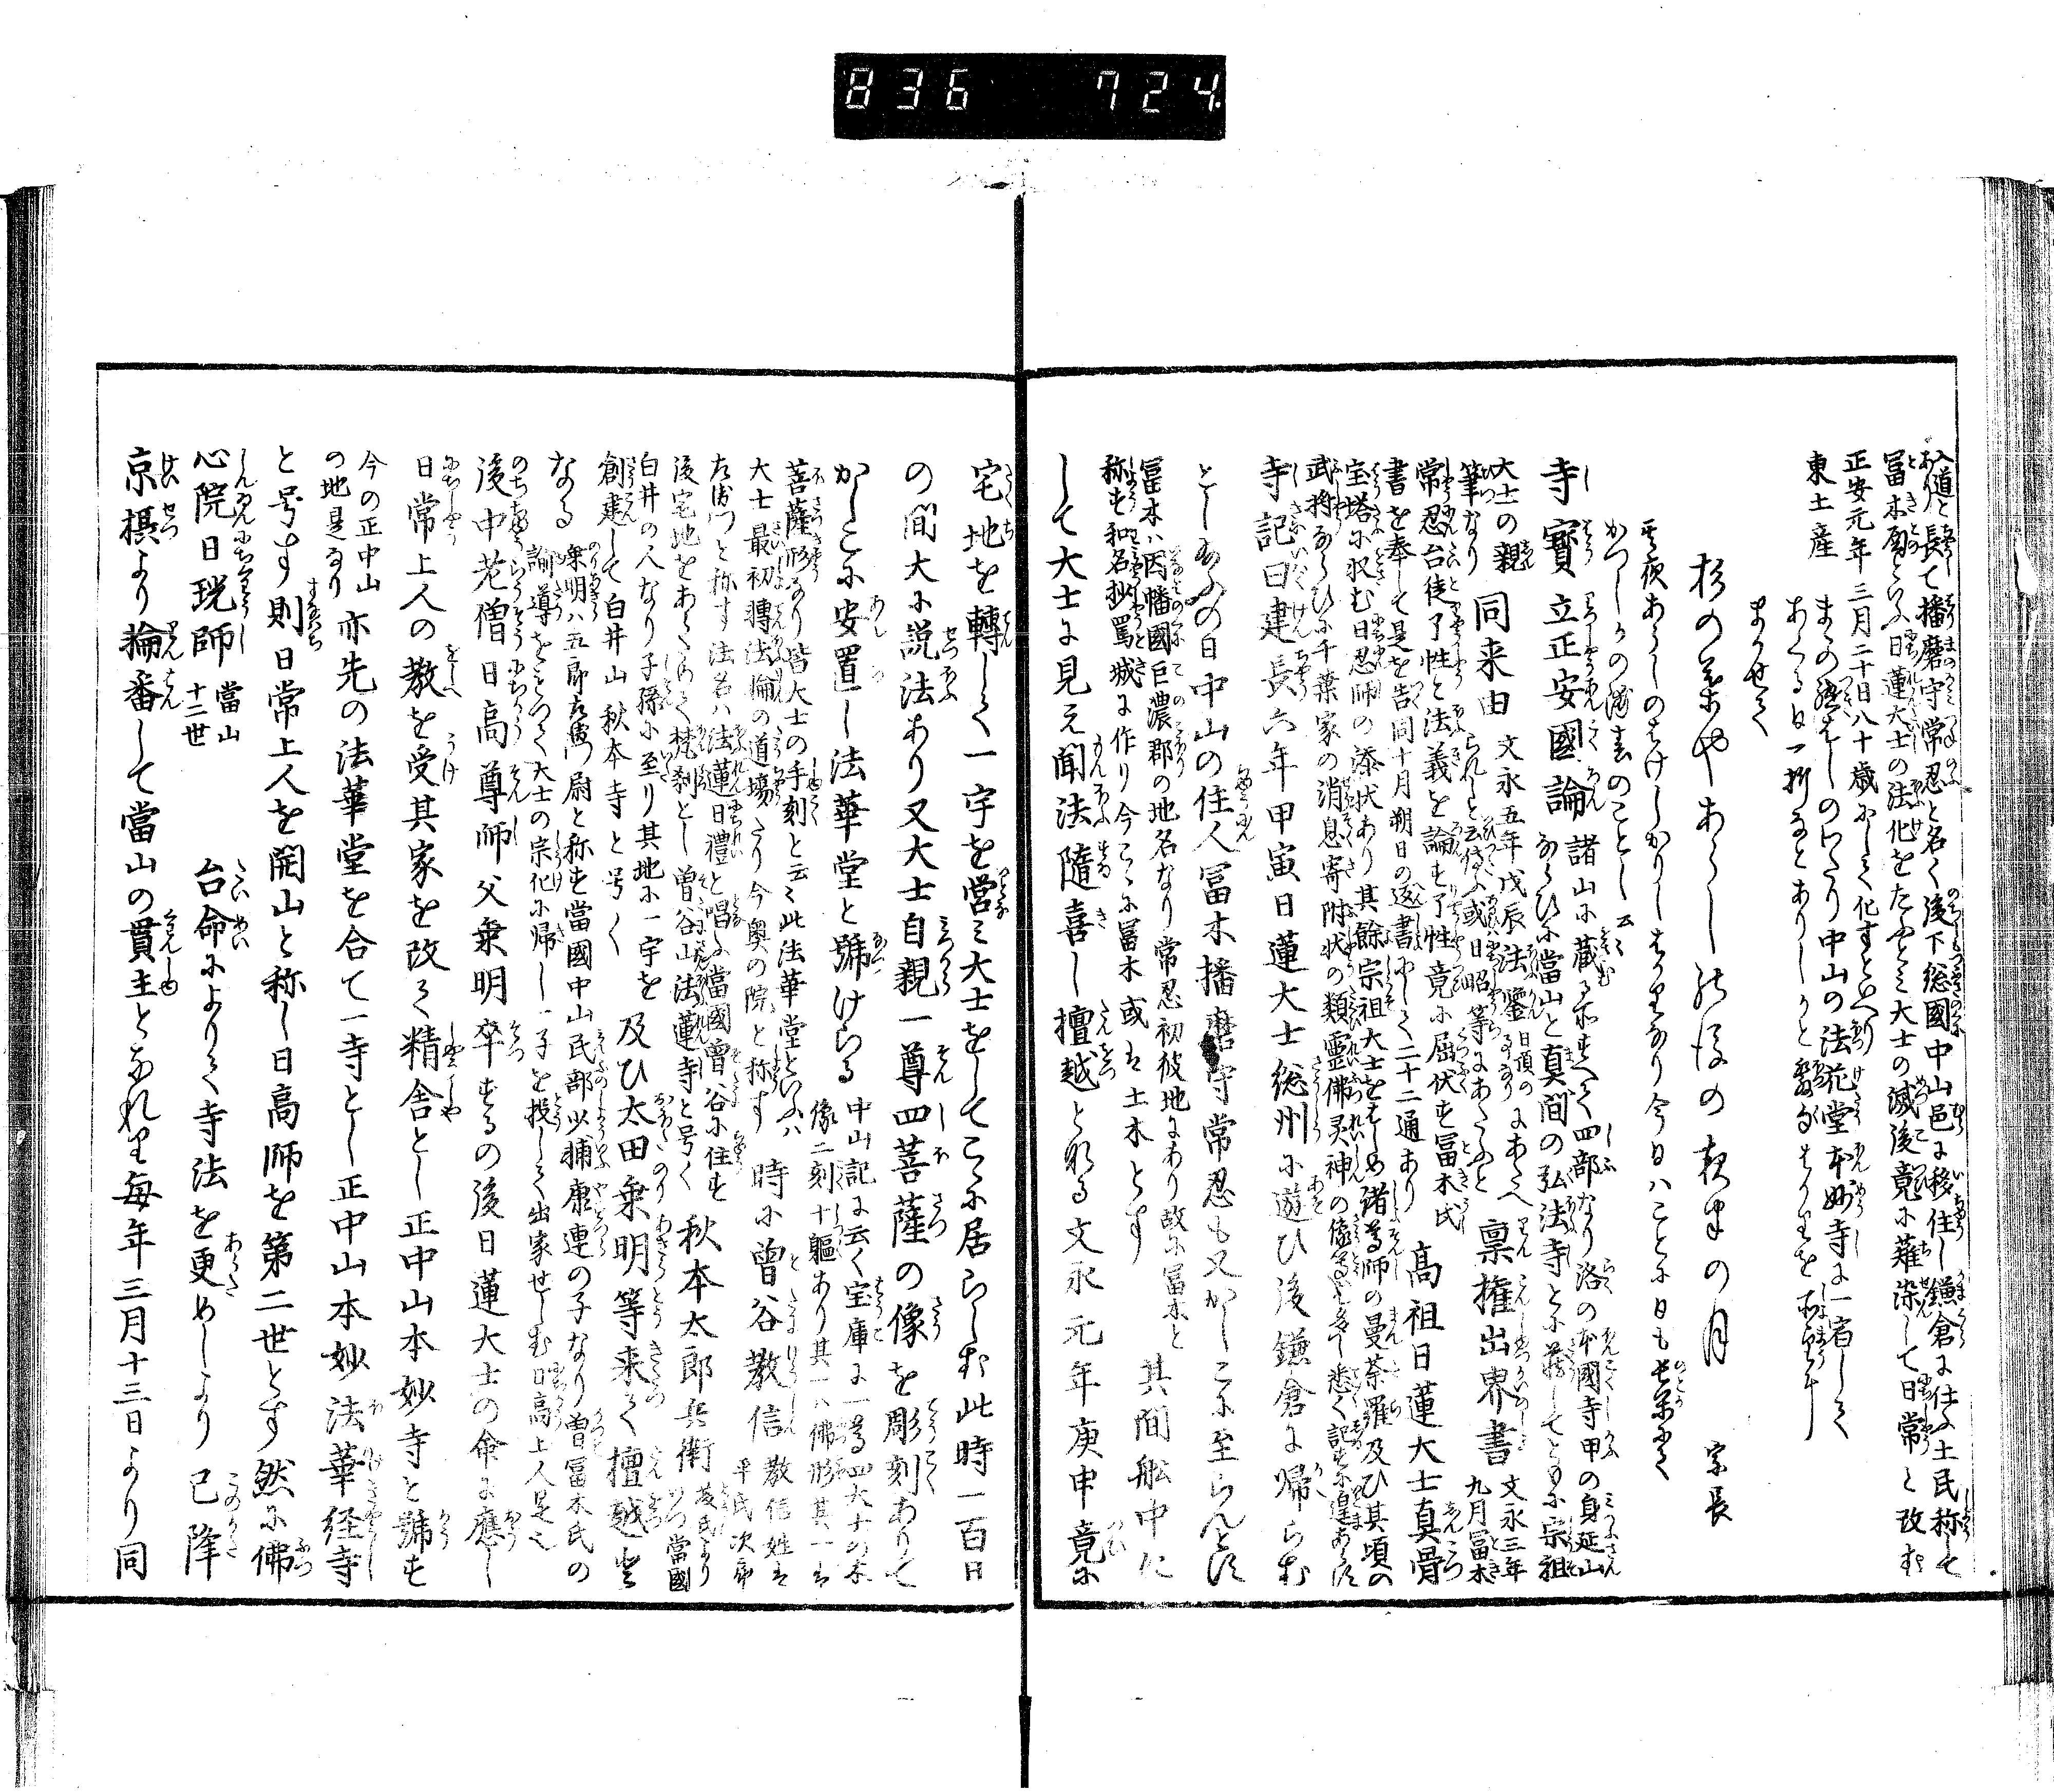 836 724
入道と
あり
長て播磨守常忍と名く後下総國中山邑に移住し鎌倉に仕ふ土民称して
冨木殿といふ日蓮大士の法化をたふとミ大士の滅後竟に薙染して日常と改む
正安元年三月二十日八十歳にして化すといへり
東土産 まゝの継はしのわたり中山の法花堂本妙寺に一宿して
あくる日一折なとありしかと發句はかりを所望に
まかせて
杉の葉やあらし の後の夜半の月 宗長
其夜あらしのはけしかりしはかりなり今日ハことに日も長閑にて
かつしかの浦春のことし云云
寺寳 立正安國論 諸山に蔵る所すへて四部なり洛の本國寺甲の身延山
ならひに當山と真間の弘法寺とに蔵してともに宗祖
大士の親
筆なり 同来由 文永五年戊辰法鑒日頂の にあたへ
られしと云 稟権出界書 文永三年
九月冨木
常忍台徒了性と法義を論す了性竟に屈伏す冨木氏
書を奉して是を告同十月朔日の返書 二十二通あり 高祖日蓮大士真骨
宝塔に収む日忍師の添状あり其餘宗祖大士をはしめ諸尊師の曼荼羅及ひ其頃の
武将ならひに千葉家の消息寄附状の類靈佛灵神の像等多し悉く記すに遑あらす
寺記曰建長六年甲寅日蓮大士総州に遊ひ後鎌倉に帰らむ
としたまふの日中山の住人冨木播磨守常忍も又かしこに至らんとす
冨木ハ因幡國巨濃郡の地名なり常忍初彼地にあり故に冨木と
称す和名抄罵城に作り今こゝに冨木或は土木とす 其間舩中に
して大士に見え聞法隨喜し檀越となる文永元年庚申竟に
宅地を轉して一宇を営ミ大士をしてこゝに居らしむ此時一百日
の間大に説法あり又大士自親一尊四菩薩の像を彫刻ありて
かしこに安置し法華堂と號けらる 中山記に云く宝庫に一尊四大士の木
像二刻十軀あり其一ハ佛形其一は
菩薩形なり皆大士の手刻と云々此法華堂といふハ
大士最初轉法輪の道場たり今奥の院と称す 時に曽谷教信 教信姓は
平氏次郎
左衛門と称す法名ハ法蓮日禮と唱ふ當國曽谷に住す
後宅地をあらためて梵刹とし曽谷山法蓮寺と号く 秋本太郎兵衛 當國
白井の人なり子孫に至り其地に一宇を
創建して白井山秋本寺と号く 及ひ太田乗明等来て檀越と
なる 乗明ハ五郎左衛門尉と称す當國中山民部少輔康連の子なり曽冨木氏の
諭導をまつて大士の宗化に帰し一子を投して出家せしむ日高上人是也
後中老僧日高尊師父乗明卒するの後日蓮大士の命に應し
日常上人の教を受其家を改て精舎とし正中山本妙寺と號す
今の正中山
の地是なり 亦先の法華堂を合て一寺とし正中山本妙法華経寺
と号す則日常上人を開山と称し日高師を第二世とす然に佛
心院日珖師 當山
十二世 台命によりて寺法を更めしより已降
京摂より輪番して當山の貫主となれり毎年三月十三日より同